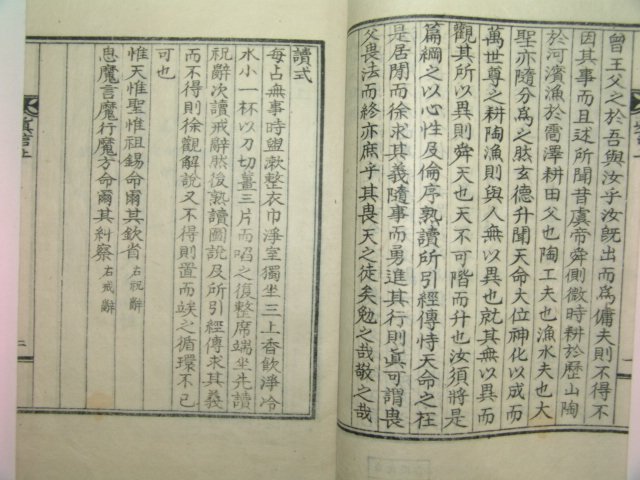 曾王父之於吾與汝乎汝旣出而爲傭夫則不得不
因其事而且述所聞昔虞帝舜側微時耕於歷山陶
於河濱漁於雷澤耕田父也陶工夫也漁水夫也大
聖亦隨分爲之肱玄德升聞天命大位神化以成而
萬世尊之耕陶漁則與人無以異也就其無以異而
觀其所以異則舜天也天不可階而升也汝須將是
篇綱之以心性及倫序熟讀所引經傳恃天命之在
是居閒而徐求其義隨事而勇進其行則眞可謂畏
父畏法而終亦庶乎其畏天之徒矣勉之哉敬之哉
讀式
每占無事時盥漱整衣巾淨室獨坐三上香飮淨冷
水小一杯以刀切薑三片而啗之復整席端坐先讀
祝辭次讀戒辭然後熟讀圖說及所引經傳求其義
而不得則徐觀解說又不得則置而竢之循環不已
可也
惟天惟聖惟祖錫命爾其欽省 右祝辭
息魔言魔行魔方命爾其糾察 右戒辭